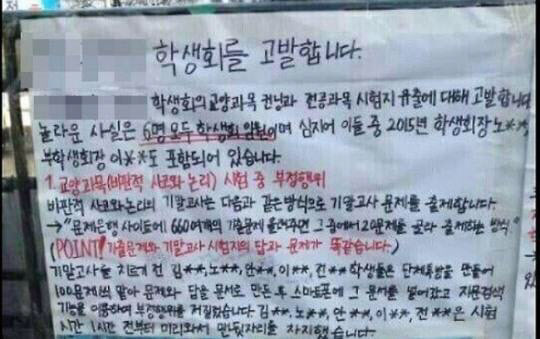 학생회를 고발합니다.
학생회의 교양과목 컨닝과 전공과목 시험지 유출에 대해 고발합니다
놀라운 사실은 6명 모두 학생회 임원이며 심지어 이들 중 2015년 학생회장 노**,
부학생회장 이**도 포함되어 있습니다.
1. 교양과목(비판적 사고와 논리) 시험 중 부정행위
비판적 사고와 논리는 다음과 같은 방식으로 기말고사 문제를 출제합니다.
→ "문제은행 사이트에 660여개의 기출문제 올려주면 그 중에서 20문제를 골라 출제하는 방식."
(POINT! 기출문제와 기말고사 시험지의 답과 문제가 똑같습니다.)
기말고사를 치르기 전 김**, 노**, 안**, 이**, 전** 학생들은 단체톡방을 만들어
100문제씩 맡아 문제와 답을 문서로 만든 후 스마트폰에 그 문서를 넣어갔고 지문검색
기능을 이용하여 부정행위를 저질렀습니다. 김**, 노**, 안**, 이**, 전**은 시험
시간 1시간 전부터 미리와서 맨뒷자리를 차지했습니다.